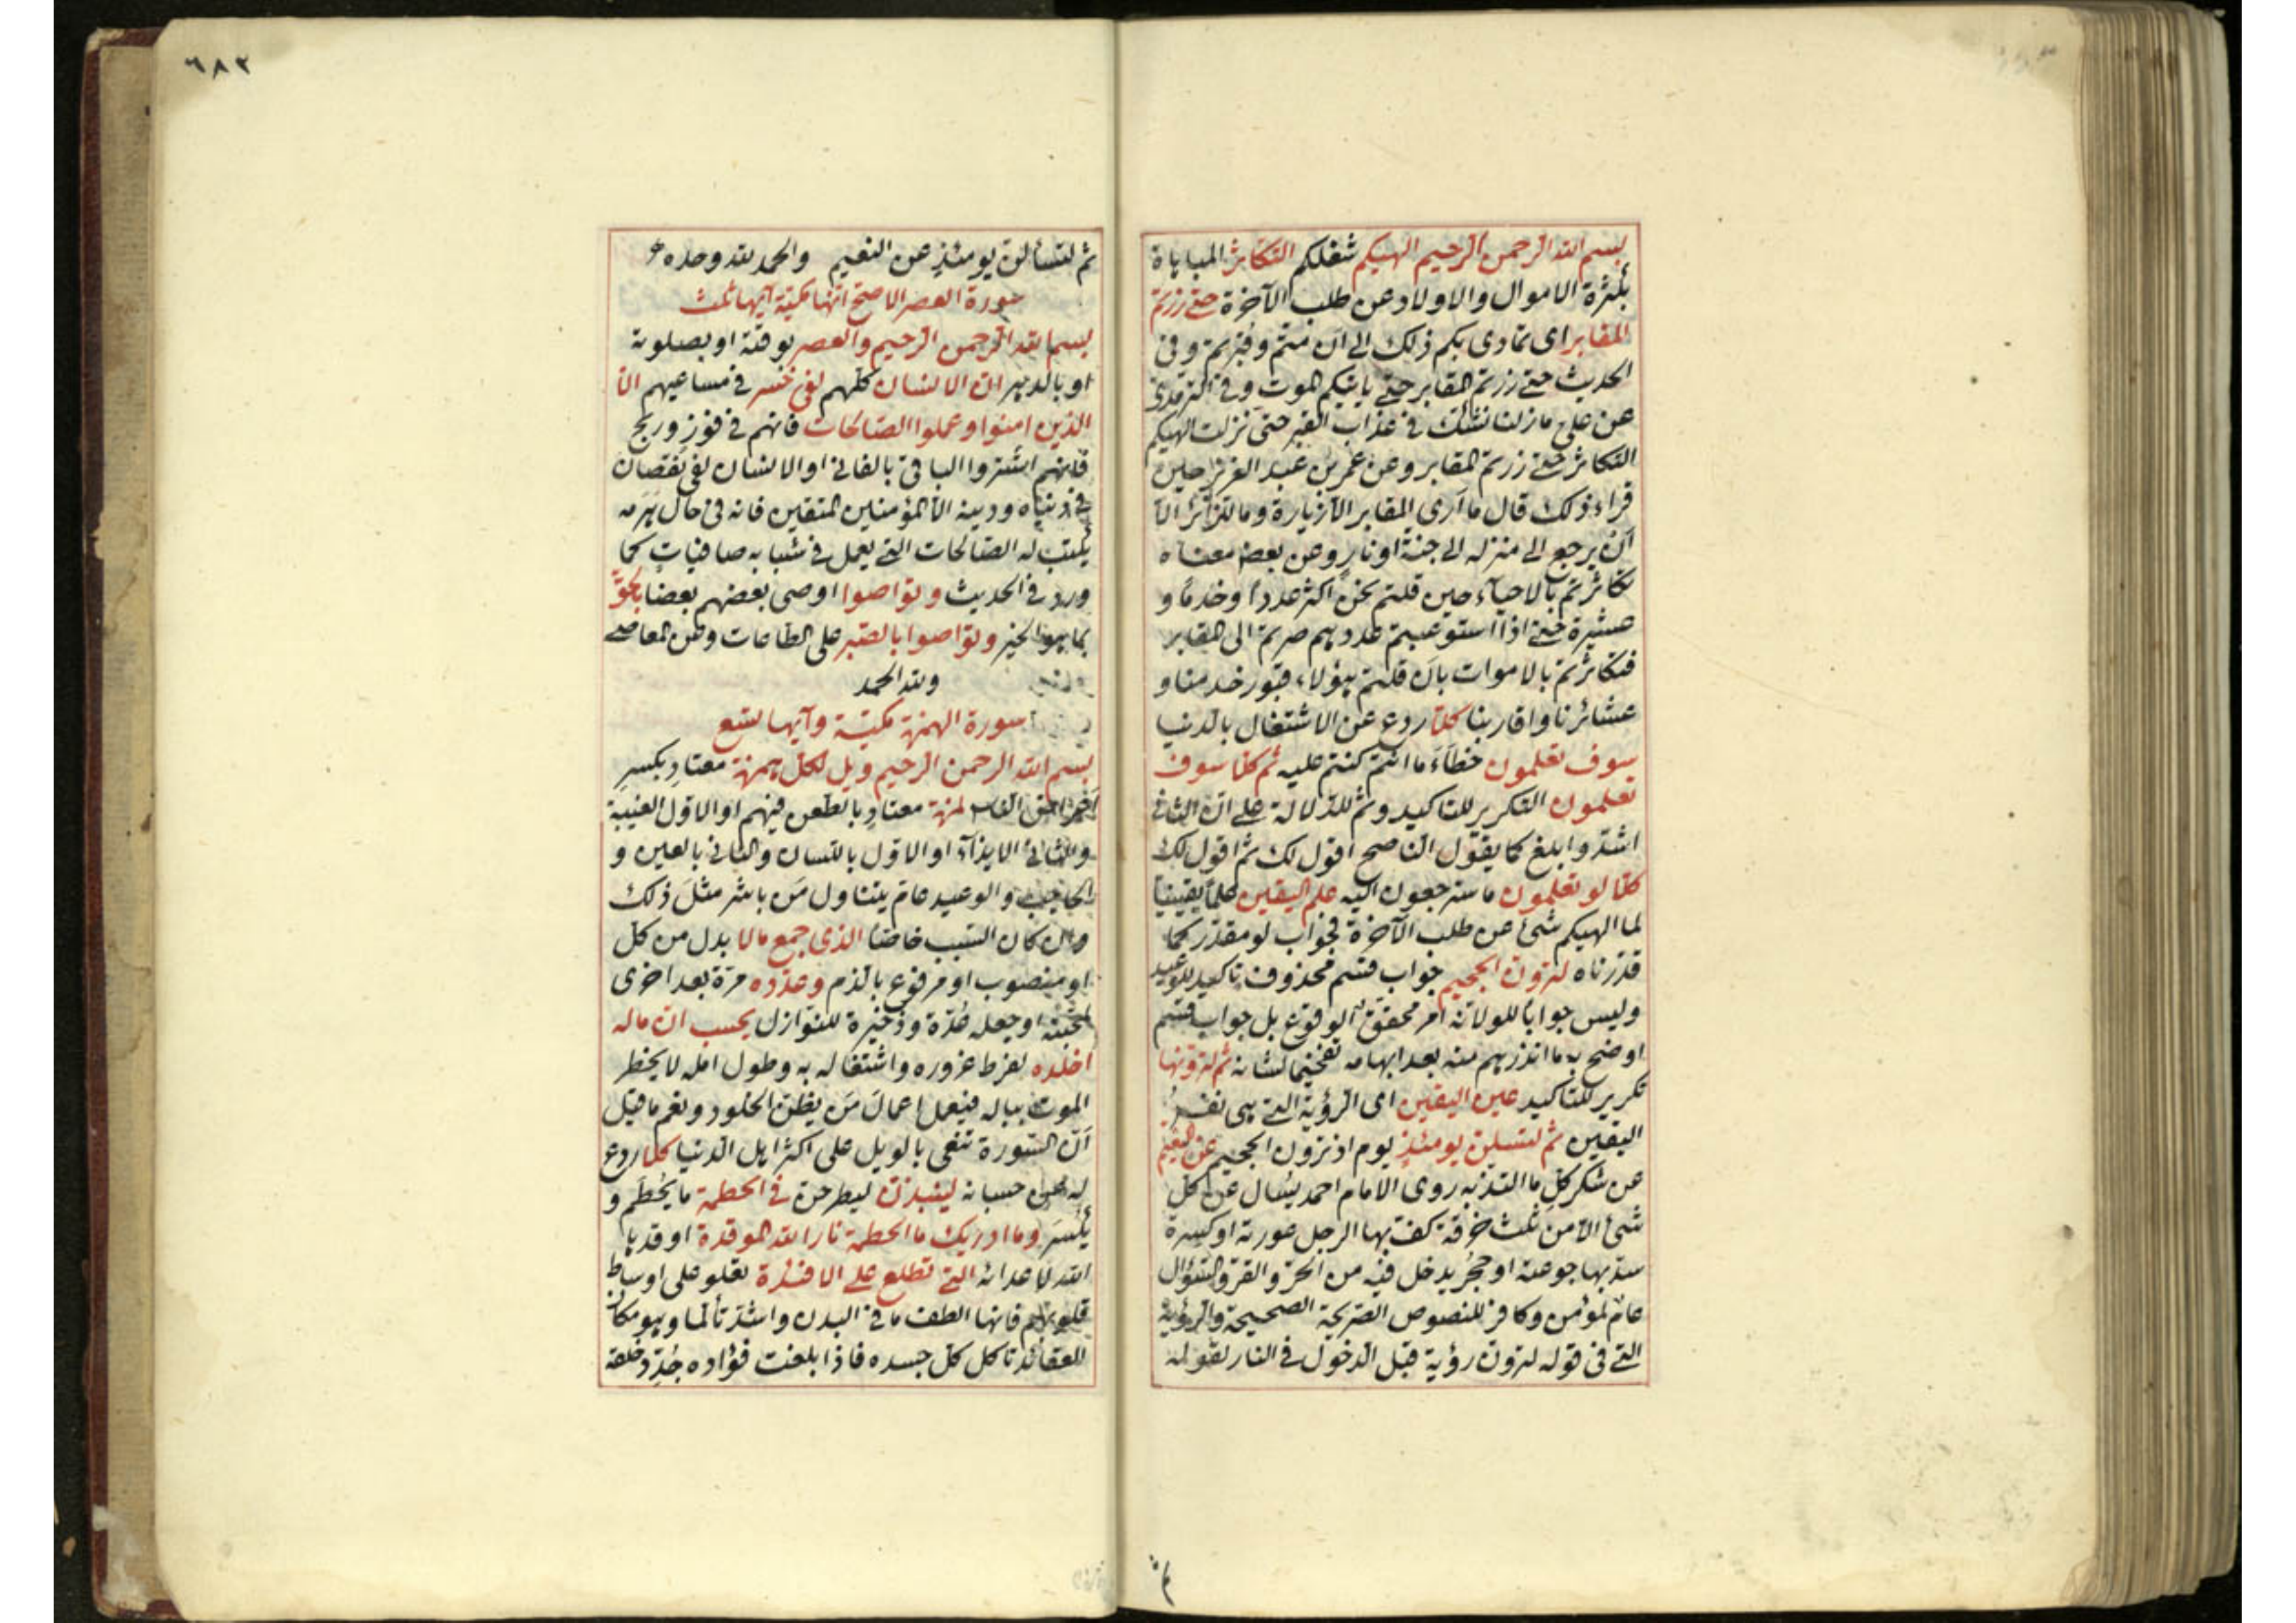 بسم الله الرحمن الرحيم الهيكم شغلكم التكاثر المباهاة
بكثرة الاموال والاولاد عن طلب الآخرة حتى زرتم
المقابر اى تمادى بكم ذلك الى ان متم وقبرتم وفى
الحديث حتى زرتم المقابر حتى ياتيكم الموت وفى الترمذى
عن على مازلنا نشك فى عذاب القبر حتى نزلت الهيكم
التكاثر حتى زرتم المقابر وعن عمر بن عبد العزيز حين
قراء ذلك قال ما ارى المقابر الا زيارة وما للزائر الا
ان يرجع الى منزله الى جنة او نار وعن بعض معناه
تكاثرتم بالاحياء حين قلتم نحن اكثر عددا وخدما و
عشيرة حتى اذا استوعبتم عددهم صرتم الى المقابر
فتكاثرتم بالاموات بان قلتم هؤلاء قبور خدمنا و
عشائرنا واقاربنا كلا ردع عن الاشتغال بالدنيا
سوف تعلمون خطاء ما انتم كنتم عليه ثم كلا سوف
تعلمون التكرير للتاكيد وثم للدلالة على ان الثانى
اشد وابلغ كما يقول الناصح اقول لك ثم اقول لك
كلا لو تعلمون ما سترجعون اليه علم اليقين علما يقينيا
لما الهيكم شئ عن طلب الآخرة فجواب لو مقدر كما
قدرناه لترون الجحيم جواب قسم محذوف تاكيد للوعيد
وليس جوابا للو لانه امر محقق الوقوع بل جواب قسم
اوضح به ما انذرهم منه بعد ابهامه تفخيما لشانه ثم لترونها
تكرير للتاكيد عين اليقين اى الرؤية التى هى نفس
اليقين ثم لتسئلن يومئذ يوم اذ ترون الجحيم عن النعيم
عن شكر كل ما التذ به روى الامام احمد يسال عن كل
شئ الا من ثلث خرقة كف بها الرجل عورته او كسرة
سد بها جوعته او جحر يدخل فيه من الحر والقر والسؤال
عام لمؤمن وكافر للنصوص الصريحة الصحيحة والرؤية
التى فى قوله لترون رؤية قبل الدخول فى النار لقوله
ثم
٦٨٣
ثم لتسألن يومئذ عن النعيم والحمد لله وحده
سورة العصر الاصح انها مكية آيها ثلث
بسم الله الرحمن الرحيم والعصر بوقته او بصلوته
او بالدهر ان الانسان كلهم لفى خسر فى مساعيهم الا
الذين امنوا وعملوا الصالحات فانهم فى فوز وربح
فانهم اشتروا الباقى بالفانى او الانسان لفى نقصان
فى دنياه ودينه الا المؤمنين المتقين فانه فى حال هرمه
يكتب له الصالحات التى يعمل فى شبابه صافيات كما
ورد فى الحديث وتواصوا اوصى بعضهم بعضا بالحق
بما هو الخير وتواصوا بالصبر على الطاعات وعن المعاصى
ولله الحمد
سورة الهمزة مكية وآيها تسع
بسم الله الرحمن الرحيم ويل لكل همزة معتاد بكسر
اعراض الناس لمزة معتاد بالطعن فيهم او الاول الغيبة
والثانى الايذآء او الاول باللسان والثانى بالعين و
الحاجب والوعيد عام يتناول من باشر مثل ذلك
وان كان السبب خاصا الذى جمع مالا بدل من كل
او منصوب او مرفوع بالذم وعدده مرة بعد اخرى
لمحبته او جعله عدة وذخيرة للنوازل يحسب ان ماله
اخلده لفرط غروره واشتغاله به وطول امله لا يخطر
الموت بباله فيعمل اعمال من يظن الخلود ونعم ما قيل
ان السورة تنعى بالويل على اكثر اهل الدنيا كلا ردع
له عن حسبانه لينبذن ليطرحن فى الحطمة ما يحطم و
يكسر وما ادريك ما الحطمة نار الله الموقدة اوقدها
الله لاعدائه التى تطلع على الافئدة تعلو على اوساط
قلوبهم فانها الطف ما فى البدن واشد تألما وهو مكان
للعقائد تاكل كل جسده فاذا بلغت فؤاده جدد خلقه